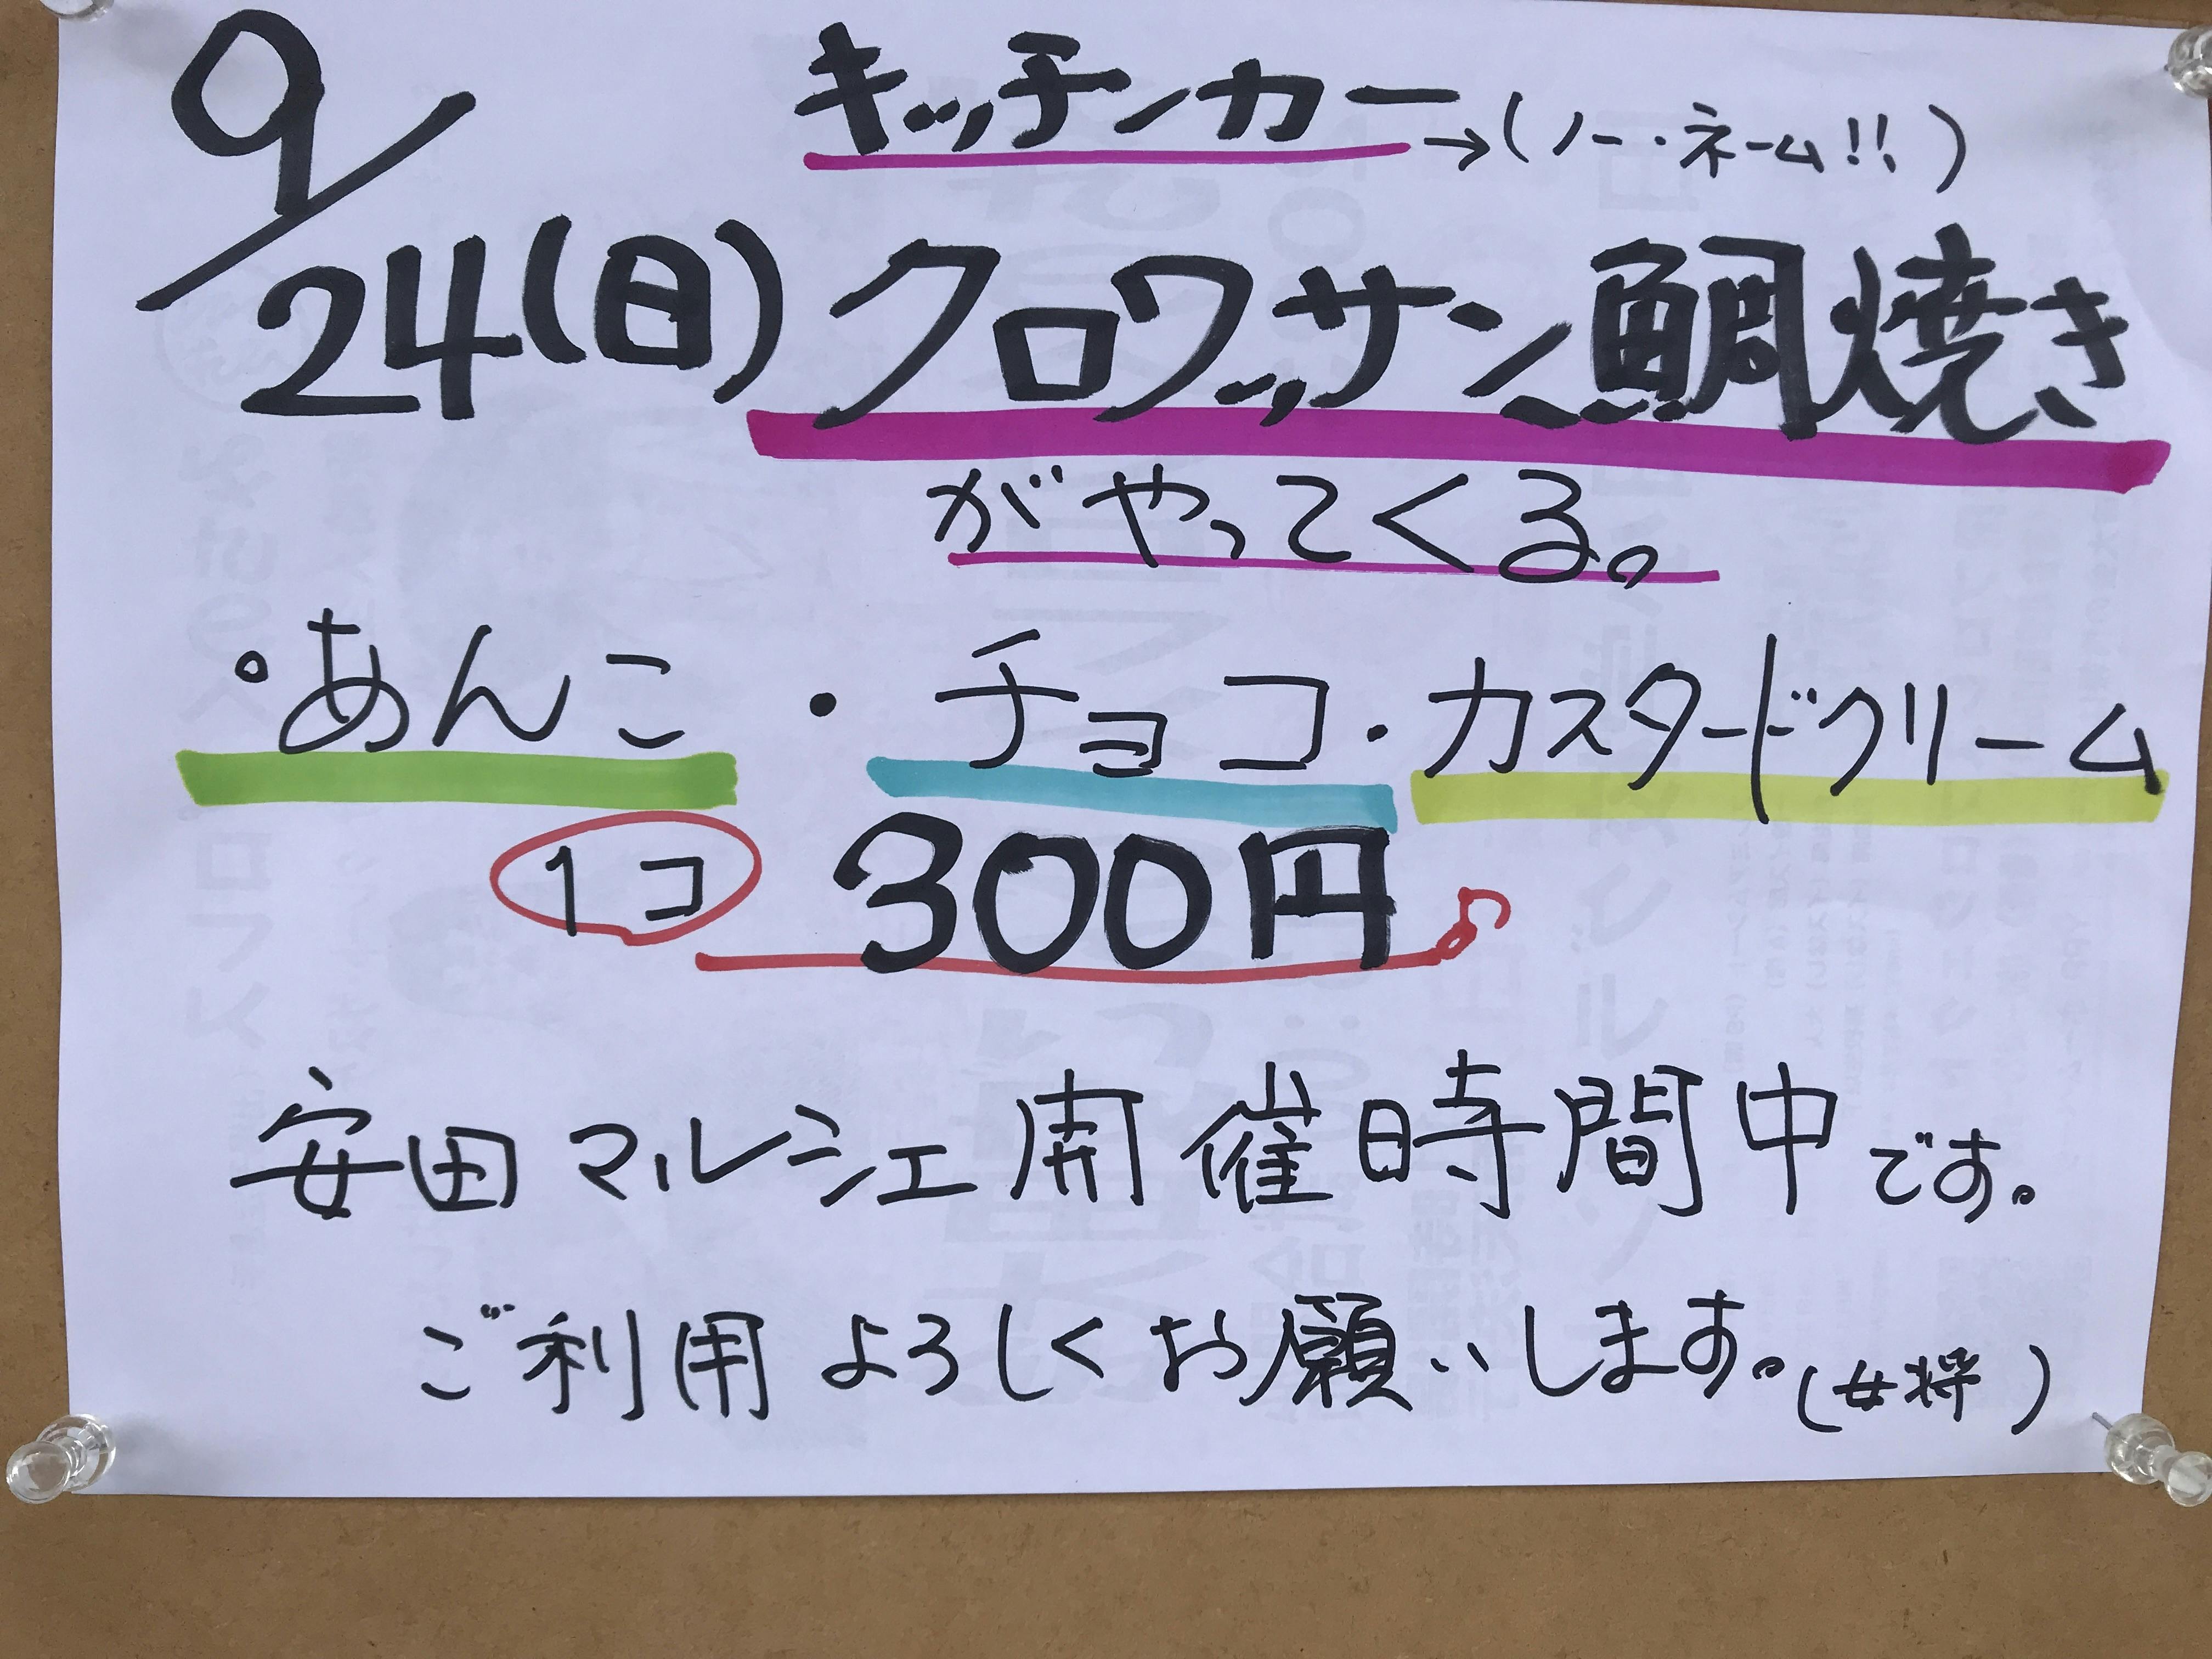 9/24(日)
キッチンカー→(ノー・ネーム!!)
クロワッサン鯛焼き
がやってくる。
・あんこ ・チョコ・カスタードクリーム
1コ 300円
安田マルシェ開催時間中です。
ご利用よろしくお願いします。(女将)